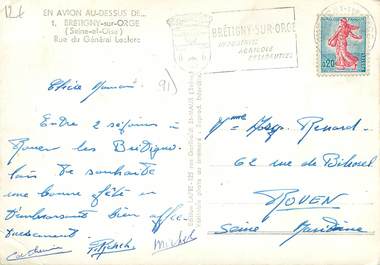 12f
EN AVION AU-DESSUS DE...
1. BRÉTIGNY-sur-ORGE
(Seine-et-Oise)
Rue du Général Leclerc
BRÉTIGNY-SUR-ORGE
INDUSTRIE
AGRICOLE
RÉSIDENTIEL
0,20
91)
Chère Maman
Entre 2 séjours à
Rouen les Brétigno-
lais te souhaite
une bonne fête en
t'embrassant bien affec-
tueusement.
Catherine
Michel
Mme Renard
62 rue de Bihorel
ROUEN
Seine Maritime